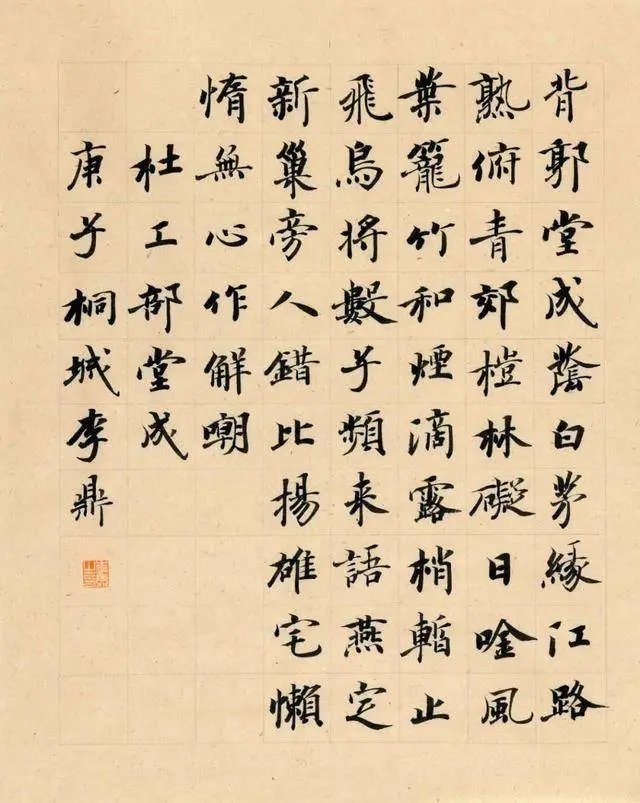 背郭堂成蔭白茅緣江路
熟俯青郊榿林礙日唫風
葉籠竹和煙滴露梢暫止
飛烏將數子頻来語燕定
新巢旁人錯比揚雄宅懶
惰無心作解嘲
杜工部堂成
庚子桐城李鼎